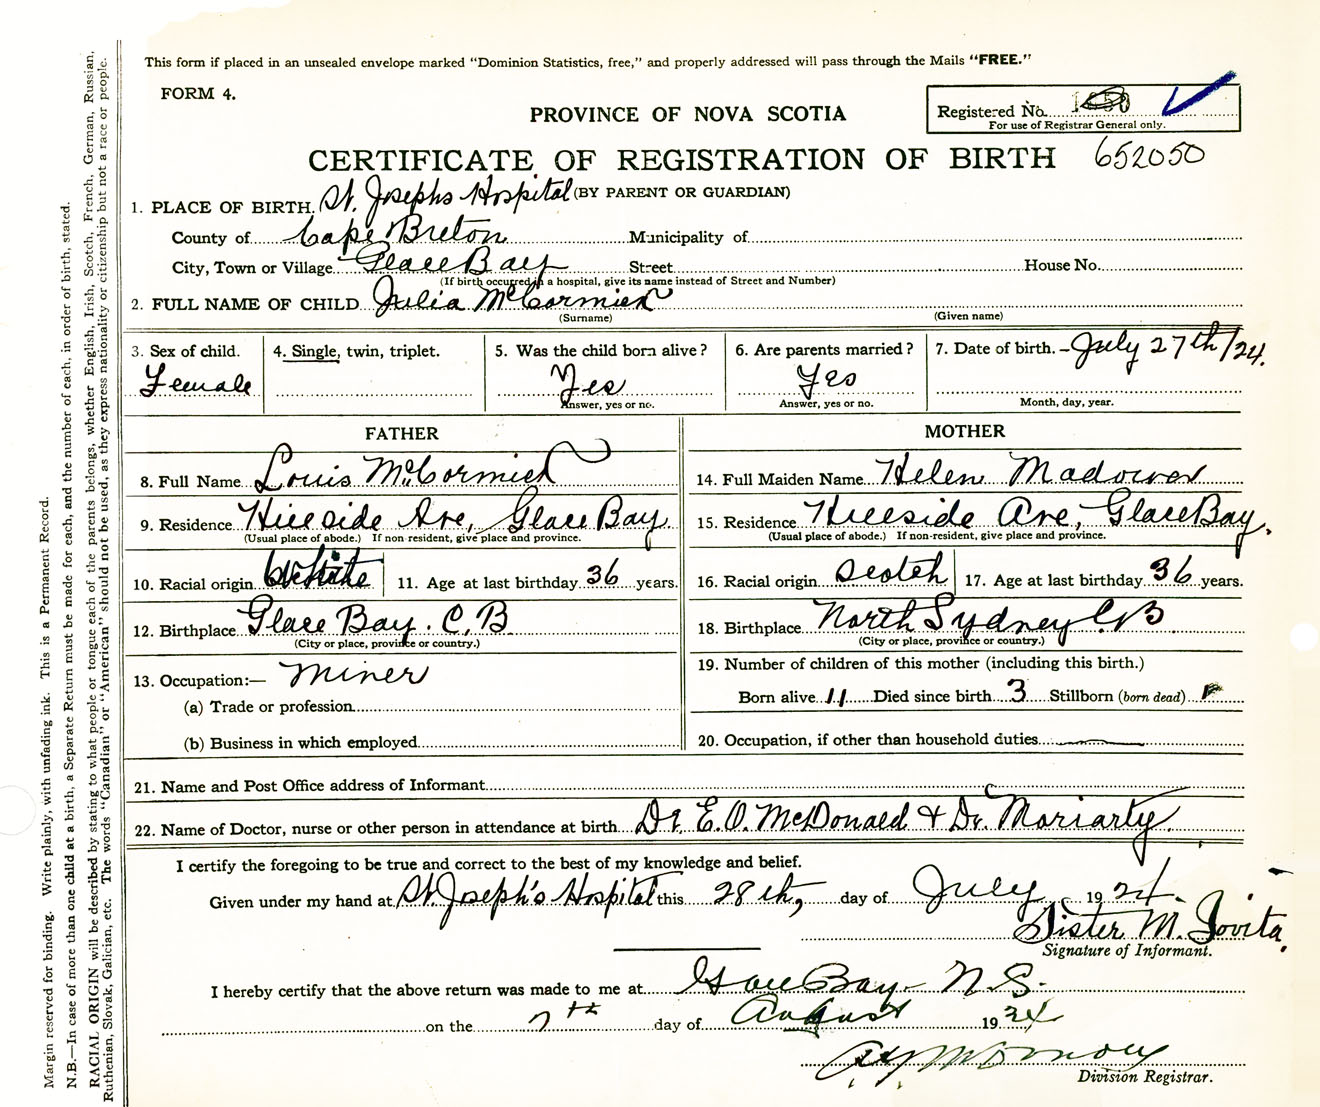 This form if placed in an unsealed envelope marked "Dominion Statistics, free," and properly addressed will pass through the Mails "FREE."
FORM 4.
PROVINCE OF NOVA SCOTIA
Registered No.
For use of Registrar General only.
CERTIFICATE OF REGISTRATION OF BIRTH 652050
(BY PARENT OR GUARDIAN)
1. PLACE OF BIRTH. St. Josephs Hospital
County of Cape Breton Municipality of
City, Town or Village Glace Bay Street House No.
(If birth occurred in a hospital, give its name instead of Street and Number)
2. FULL NAME OF CHILD Julia McCormick
(Surname) (Given name)
3. Sex of child. Female
4. Single, twin, triplet.
5. Was the child born alive? Yes
Answer, yes or no.
6. Are parents married? Yes
Answer, yes or no.
7. Date of birth. - July 27th/24.
Month, day, year.
FATHER
8. Full Name Louis McCormick
9. Residence Hillside Ave, Glace Bay
(Usual place of abode.) If non-resident, give place and province.
10. Racial origin 11. Age at last birthday 36 years.
12. Birthplace Glace Bay. C.B
(City or place, province or country.)
13. Occupation:— Miner
(a) Trade or profession
(b) Business in which employed
MOTHER
14. Full Maiden Name Helen
15. Residence Hillside Ave, Glace Bay.
(Usual place of abode.) If non-resident, give place and province.
16. Racial origin Scotch 17. Age at last birthday 36 years.
18. Birthplace North Sydney C.B
(City or place, province or country.)
19. Number of children of this mother (including this birth.)
Born alive 11 Died since birth 3 Stillborn (born dead)
20. Occupation, if other than household duties
21. Name and Post Office address of Informant
22. Name of Doctor, nurse or other person in attendance at birth Dr. E.O. McDonald & Dr. Moriarty.
I certify the foregoing to be true and correct to the best of my knowledge and belief.
Given under my hand at St. Joseph's Hospital this 28th, day of July 1924.
Sister M. Jovita.
Signature of Informant.
I hereby certify that the above return was made to me at Glace Bay - N.S.
on the 7th day of August 1924
Division Registrar.
Margin reserved for binding. Write plainly, with unfading ink. This is a Permanent Record.
N.B.—In case of more than one child at a birth, a Separate Return must be made for each, and the number of each, in order of birth, stated.
RACIAL ORIGIN will be described by stating to what people or tongue each of the parents belongs, whether English, Irish, Scotch, French, German, Russian,
Ruthenian, Slovak, Galician, etc. The words "Canadian" or "American" should not be used, as they express nationality or citizenship but not a race or people.